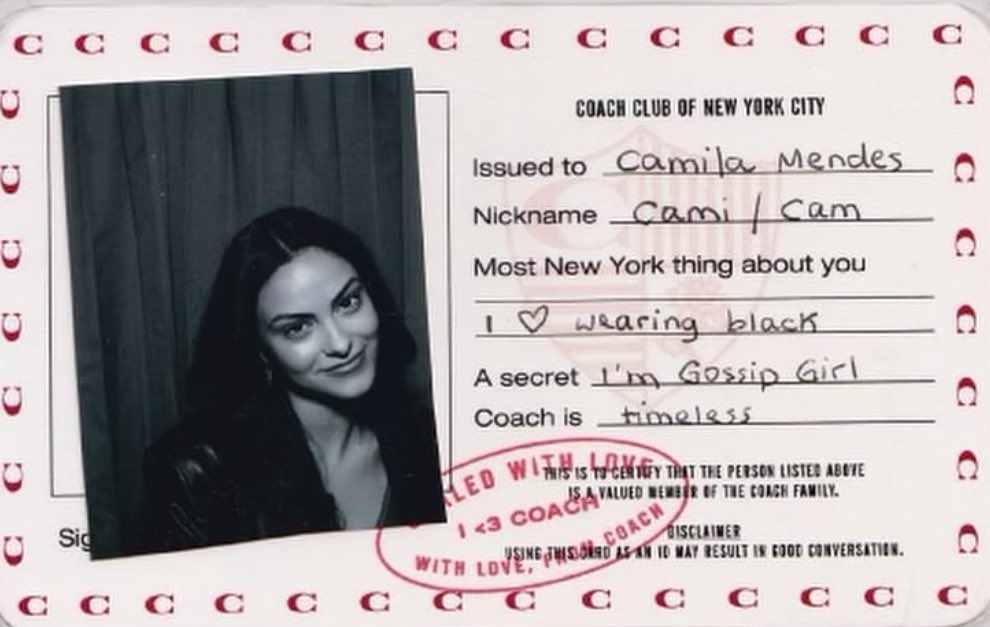 COACH CLUB OF NEW YORK CITY
Issued to Camila Mendes
Nickname Cami / Cam
Most New York thing about you
I ♡ wearing black
A secret I'm Gossip Girl
Coach is timeless
THIS IS TO CERTIFY THAT THE PERSON LISTED ABOVE
IS A VALUED MEMBER OF THE COACH FAMILY.
DISCLAIMER
USING THIS CARD AS AN ID MAY RESULT IN GOOD CONVERSATION.
Sig
LED WITH LOVE
I <3 COACH
WITH LOVE, FROM COACH